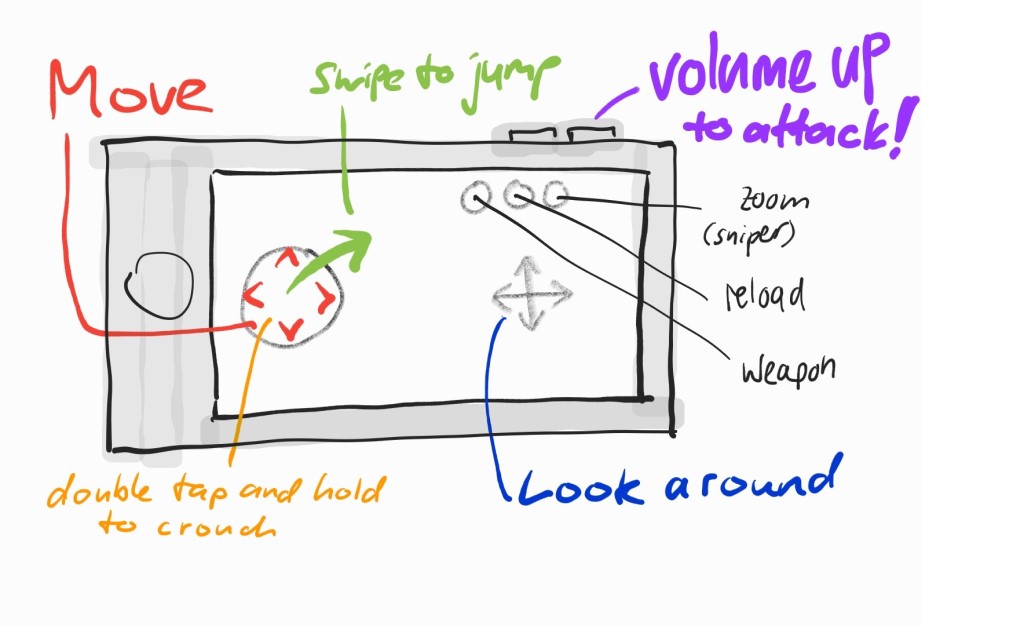 Move
Swipe to jump
Volume up
to attack!
zoom
(sniper)
reload
weapon
double tap and hold
to crouch
Look around